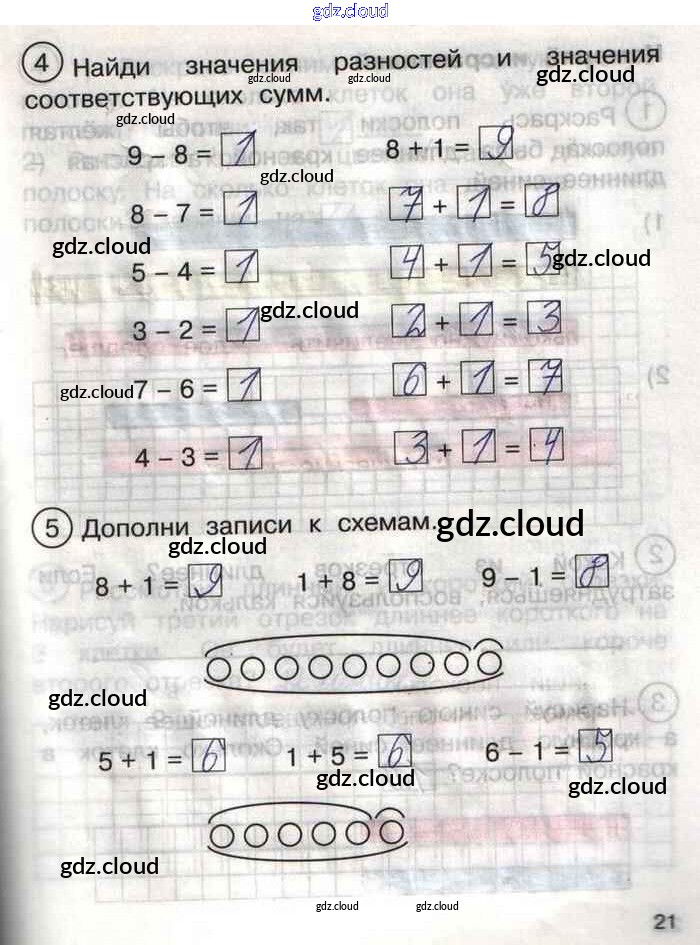 gdz.cloud
4 Найди значения разностей и значения
gdz.cloud gdz.cloud gdz.cloud
соответствующих сумм.
gdz.cloud
9 – 8 = 1 8 + 1 = 9
gdz.cloud
8 – 7 = 1 7 + 1 = 8
gdz.cloud gdz.cloud
5 – 4 = 1 4 + 1 = 5
gdz.cloud
3 – 2 = 1 2 + 1 = 3
gdz.cloud
7 – 6 = 1 6 + 1 = 7
4 – 3 = 1 3 + 1 = 4
5 Дополни записи к схемам.
gdz.cloud
gdz.cloud
8 + 1 = 9 1 + 8 = 9 9 – 1 = 8
gdz.cloud
5 + 1 = 6 1 + 5 = 6 6 – 1 = 5
gdz.cloud gdz.cloud
gdz.cloud
gdz.cloud gdz.cloud
21